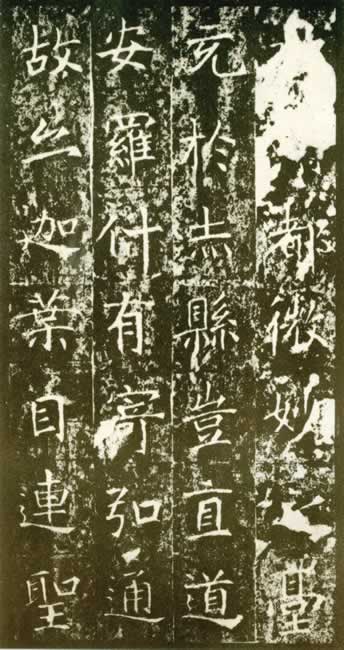 都微妙之臺
充於赤縣豈直道
安羅什有寄弘通
故亦迦葉目連聖